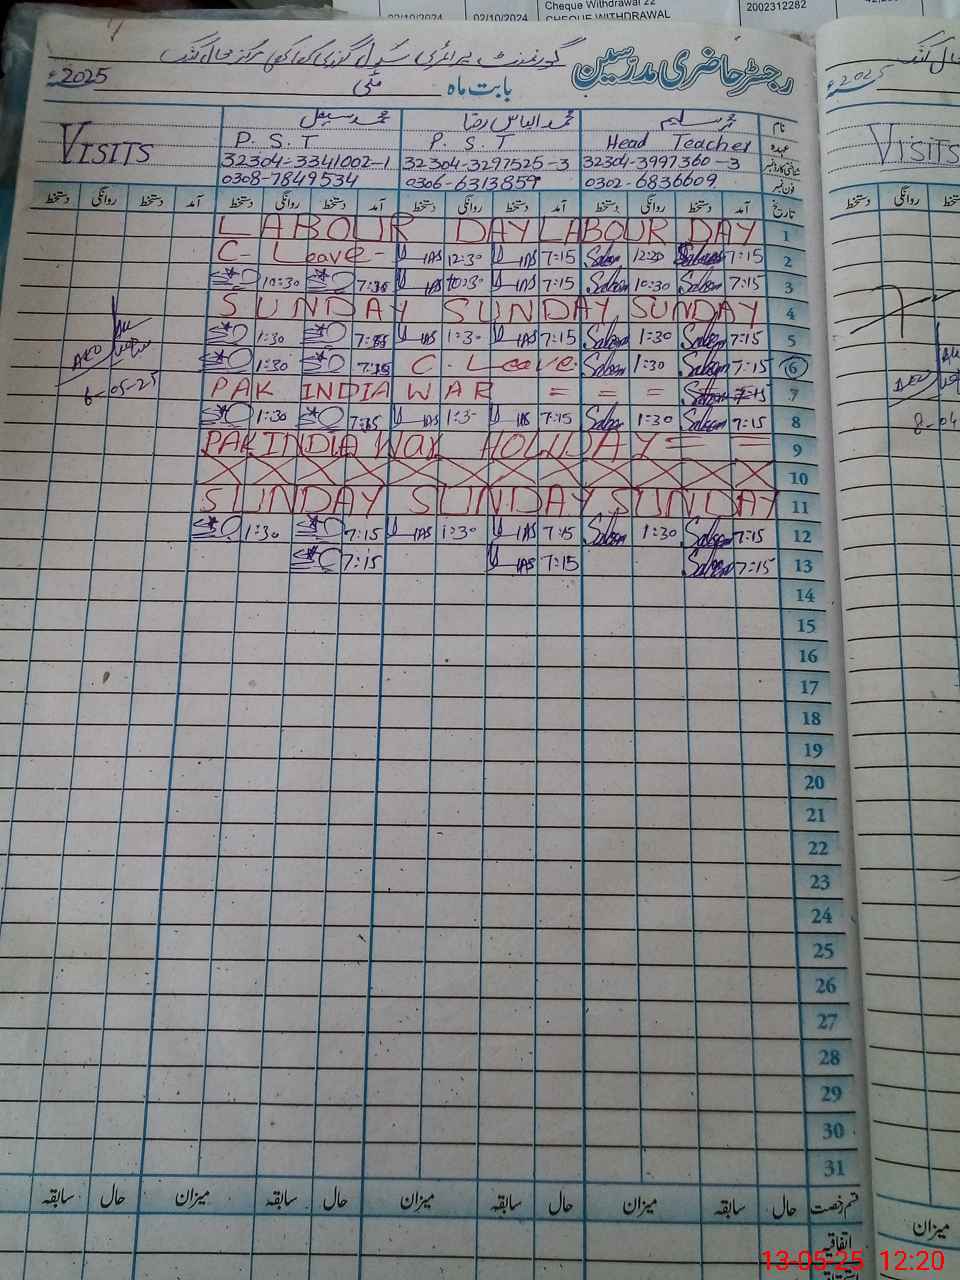 Cheque Withdrawal 22
02/10/2024 02/10/2024 CHEQUE WITHDRAWAL 2002312282
رجسٹر حاضری مدرسین گورنمنٹ پرائمری سکول
2025ء بابت ماہ مئی
نام محمد سلیم محمد الیاس رضا محمد سہیل VISITS
عہدہ Head Teacher P. S. T P. S. T
شناختی کارڈ نمبر 32304-3997360-3 32304-3297525-3 32304-3341002-1
فون نمبر 0302-6836609 0306-6313859 0308-7849534
تاریخ آمد دستخط روانگی دستخط آمد دستخط روانگی دستخط آمد دستخط روانگی دستخط آمد دستخط روانگی دستخط
1 LABOUR DAY LABOUR DAY
2 7:15 Saleem 12:20 Saleem 7:15 12:30 C- Leave-
3 7:15 Saleem 10:30 Saleem 7:15 10:30 7:15 10:30
4 SUNDAY SUNDAY SUNDAY
5 7:15 Saleem 1:30 Saleem 7:15 1:30 7:15 1:30
6 7:15 Saleem 1:30 Saleem C. Leave 7:15 1:30 AEO
7 7:15 Saleem PAK INDIA WAR = = = 6-05-25
8 7:15 Saleem 1:30 Saleem 7:15 1:3- 7:15 1:30
9 PAK INDIA WAR HOLIDAY = =
10
11 SUNDAY SUNDAY SUNDAY
12 7:15 Saleem 1:30 Saleem 7:15 1:30 7:15 1:30
13 7:15 Saleem 7:15 7:15
14
15
16
17
18
19
20
21
22
23
24
25
26
27
28
29
30
31
قسم رخصت حال سابقہ میزان حال سابقہ میزان حال سابقہ میزان حال سابقہ
اتفاقیہ
2025ء
VISITS
روانگی دستخط
AEO
8-04
میزان
13-05-25 12:20